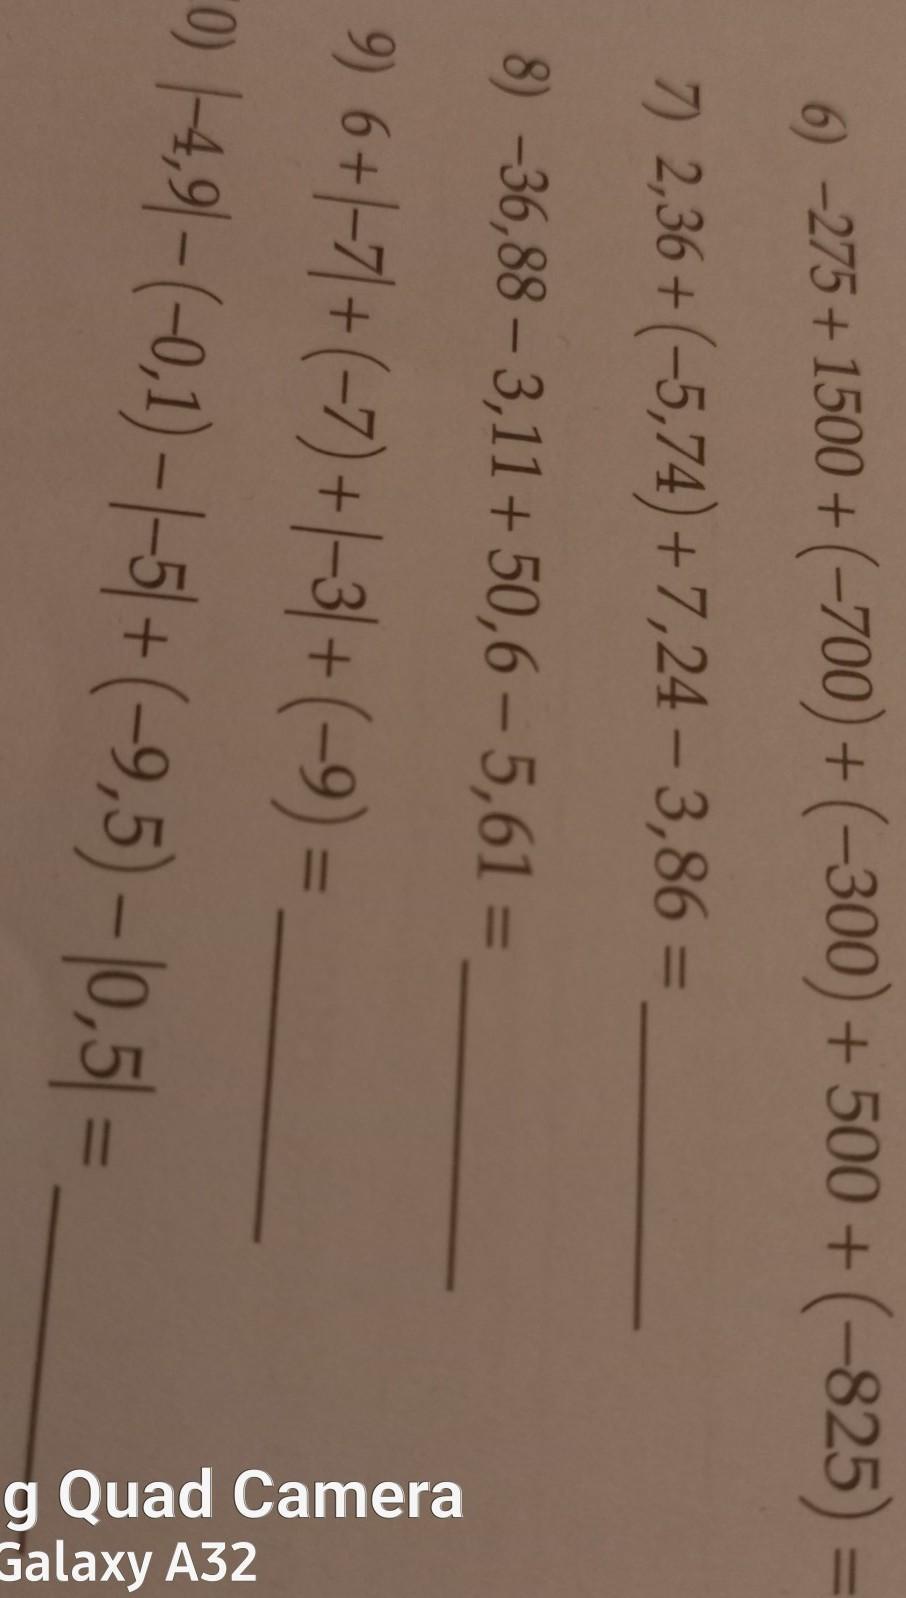 6) −275 + 1500 + (−700) + (−300) + 500 + (−825) =
7) 2,36 + (−5,74) + 7,24 − 3,86 =
8) −36,88 − 3,11 + 50,6 − 5,61 =
9) 6 + |−7| + (−7) + |−3| + (−9) =
0) |−4,9| − (−0,1) − |−5| + (−9,5) − |0,5| =
g Quad Camera
Galaxy A32